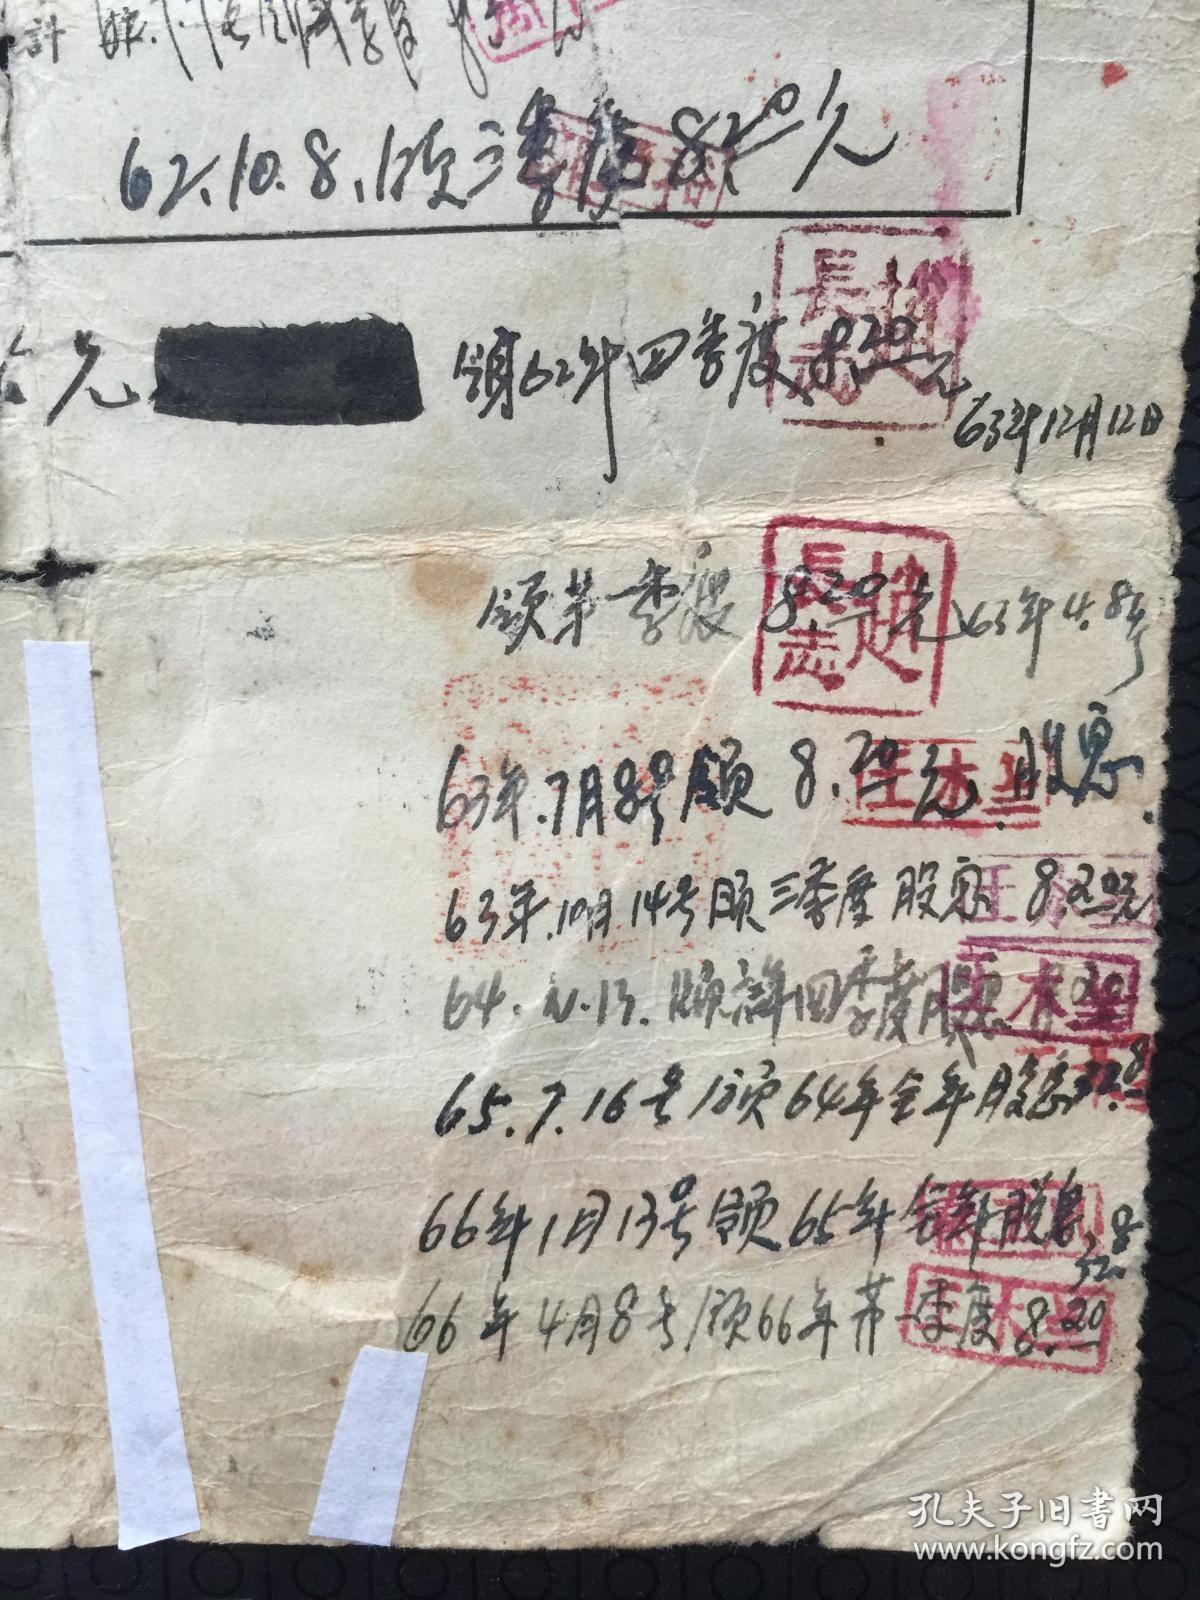 計
62.10.8.领三季度 8.20元
元
領62年四季度 8.20元
63年12月12日
長志
趙
领第一季度 8.20元 63年4.8号
長志
趙
63年.7月8号领 8.20元 股息
63年.10月14号领三季度股息 8.20元
64. 13.领 四季度股息 8.20
65.7.16号领64年全年股息32.8
66年1月13号领65年全年股息32.8
66年4月8号领66年第一季度8.20
孔夫子旧书网
www.kongfz.com